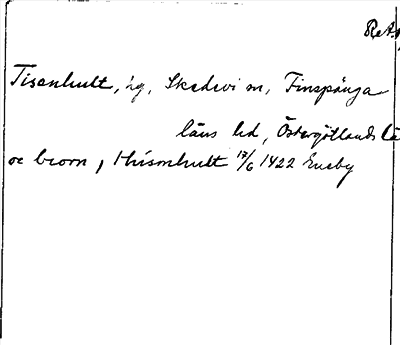 Tisenhult, hg, Skedevi sn, Finspånga
läns hd, Östergötlands lä
oc biorn, Thísmhultt 17/6 1422 Eneby